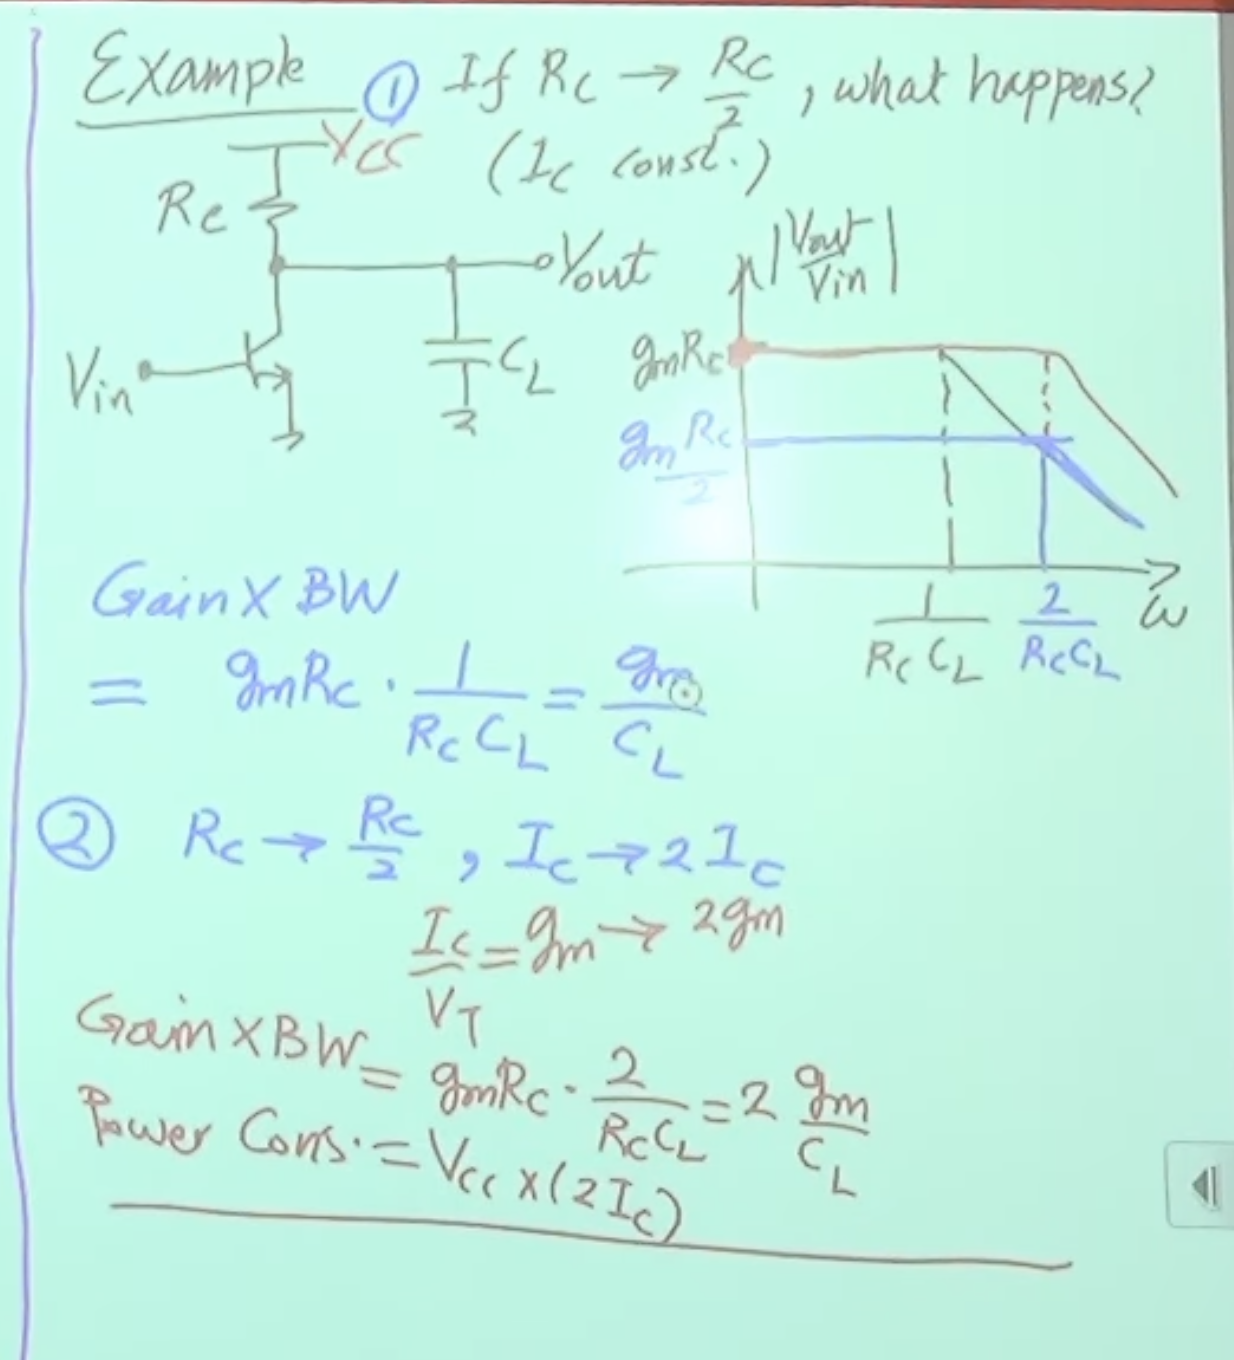 Example ① If Rc → Rc/2 , what happens?
(Ic const.)
Vcc
Rc
Vout
Vin
CL
|Vout/Vin|
gmRc
gm Rc/2
1/(Rc CL) 2/(RcCL) ω
Gain X BW
= gmRc · 1/(Rc CL) = gm/CL
② Rc → Rc/2 , Ic → 2Ic
Ic/VT = gm → 2gm
Gain X BW = gmRc · 2/(RcCL) = 2 gm/CL
Power Cons. = Vcc x (2Ic)